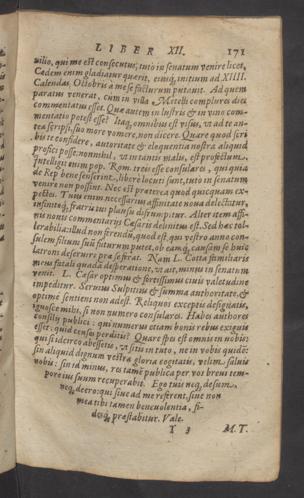 LIBER XII. 171
uilio, qui me est consecutus, tuto in senatum venire licet,
Cædem enim gladiatur quærit, eiusq́; initium ad XIIII.
Calendas Octobris a me se facturum putauit. Ad quem
paratus venerat, cum in villa Metelli complures dies
commentatus esset. Quæ autem in lustris & in vino com-
mentatio potest esse? Itaq; omnibus est visus, vt ad te an-
tea scripsi, suo more vomere, non dicere. Quare quod scri
bis te confidere, autoritate & eloquentia nostra aliquid
profici posse: nonnihil, vt in tantis malis, est profectum.
Intelligit enim pop. Rom. treis esse consulares, qui quia
de Rep bene senserint, libere locuti sunt, tuto in senatum
venire non possint. Nec est præterea quod quicquam ex-
pectes. Tuus enim necessarius affinitate noua delectatur,
infinitoq́; fratris tui plausu disrumpitur. Alter item affi-
nis nouis commentarijs Cæsaris delinitus est. Sed hæc tol-
lerabilia: illud non ferendū, quod est, qui vestro anno con-
sulem filium suū futurum putet, ob eamq́; causam se huic
latroni deseruire præ se ferat. Nam L. Cotta familiaris
meus fatali quadā desperatione, vt ait, minus in senatum
venit. L. Cæsar optimus & fortissimus ciuis valetudine
impeditur. Seruius Sulpitius & summa authoritate, &
optime sentiens non adest. Reliquos exceptis designatis,
ignosce mihi, si non numero consulares. Habes authores
consilij publici: qui numerus etiam bonis rebus exiguus
esset: quid censes perditis? Quare spes est omnis in vobis:
qui si idcirco abestis, vt sitis in tuto, ne in vobis quidē:
sin aliquid dignum vestra gloria cogitatis, velim saluis
nobis: sin id minus, res tamē publica per vos breui tem-
pore ius suum recuperabit. Ego tuis neq́; desum,
neq́; deero: qui siue ad me referent, siue non
mea tibi tamen beneuolentia, fi-
desq́; præstabitur. Vale.
Y 3 M.T.